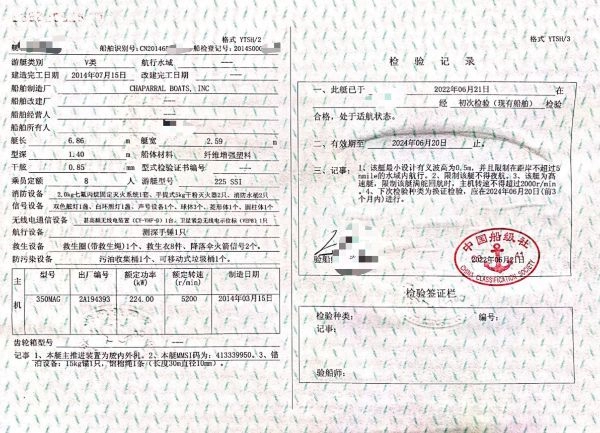 格式 YTSH/2
艇
船舶识别号: CN20146
船检登记号: 2014S000
游艇类别 Y类 航行水域
建造完工日期 2014年07月15日 改建完工日期
船舶制造厂 CHAPARRAL BOATS,INC
船舶改建厂
船舶经营人
船舶所有人
艇长 6.86 m 艇宽 2.59 m
型深 1.40 m 船体材料 纤维增强塑料
干舷 0.85 mm 型式检验证书编号
乘员定额 8 人 游艇型号 225 SSI
消防设备 2.0kg七氟丙烷固定灭火系统1套、手提式5kg干粉灭火器2只、消防水桶2只
信号设备 双色舷灯1盏、白环照灯1盏、声号设备1个、球体3个、菱形体1个、圆柱体1个
无线电通信设备 甚高频无线电装置 (CY-VHF-D) 1台、卫星紧急无线电示位标 (VEP8) 1只
航行设备 测深手锤1只
救生设备 救生圈(带救生绳)1个、救生衣8件、降落伞火箭信号2个。
防污染设备 污油收集桶1个、可移动式垃圾桶1个。
主机 型号 出厂编号 额定功率 (kW) 额定转速 (r/min) 制造日期
350MAG 2A194393 224.00 5200 2014年03月15日
齿轮箱型号
记事 1、本艇主推进装置为舷内外机。2、本艇MMSI码为: 413339950。3、锚
泊设备: 15kg锚1只, 钢棕绳1条 (长度30m直径10mm) 。
格式 YTSH/3
检 验 记 录
一、此艇已于 2022年06月21日 在
经 初次检验 (现有船舶) 检验
合格, 处于适航状态。
二、有效期至 2024年06月20日 止。
三、记事: 1、该艇最小设计有义波高为0.5m, 并且限制在距岸不超过5
nmile的水域内航行。2、限制该艇不得夜航。3、该艇为高
速艇, 限制该艇满舵回航时, 主机转速不得超过2000r/min
。4、下次检验种类为换证检验, 应在2024年06月20日(前3
个月内)进行。
验船
中国船级社
2022年06月21日
CHINA CLASSIFICATION SOCIETY
检验签证栏
检验种类: 编号:
记事:
验船师: